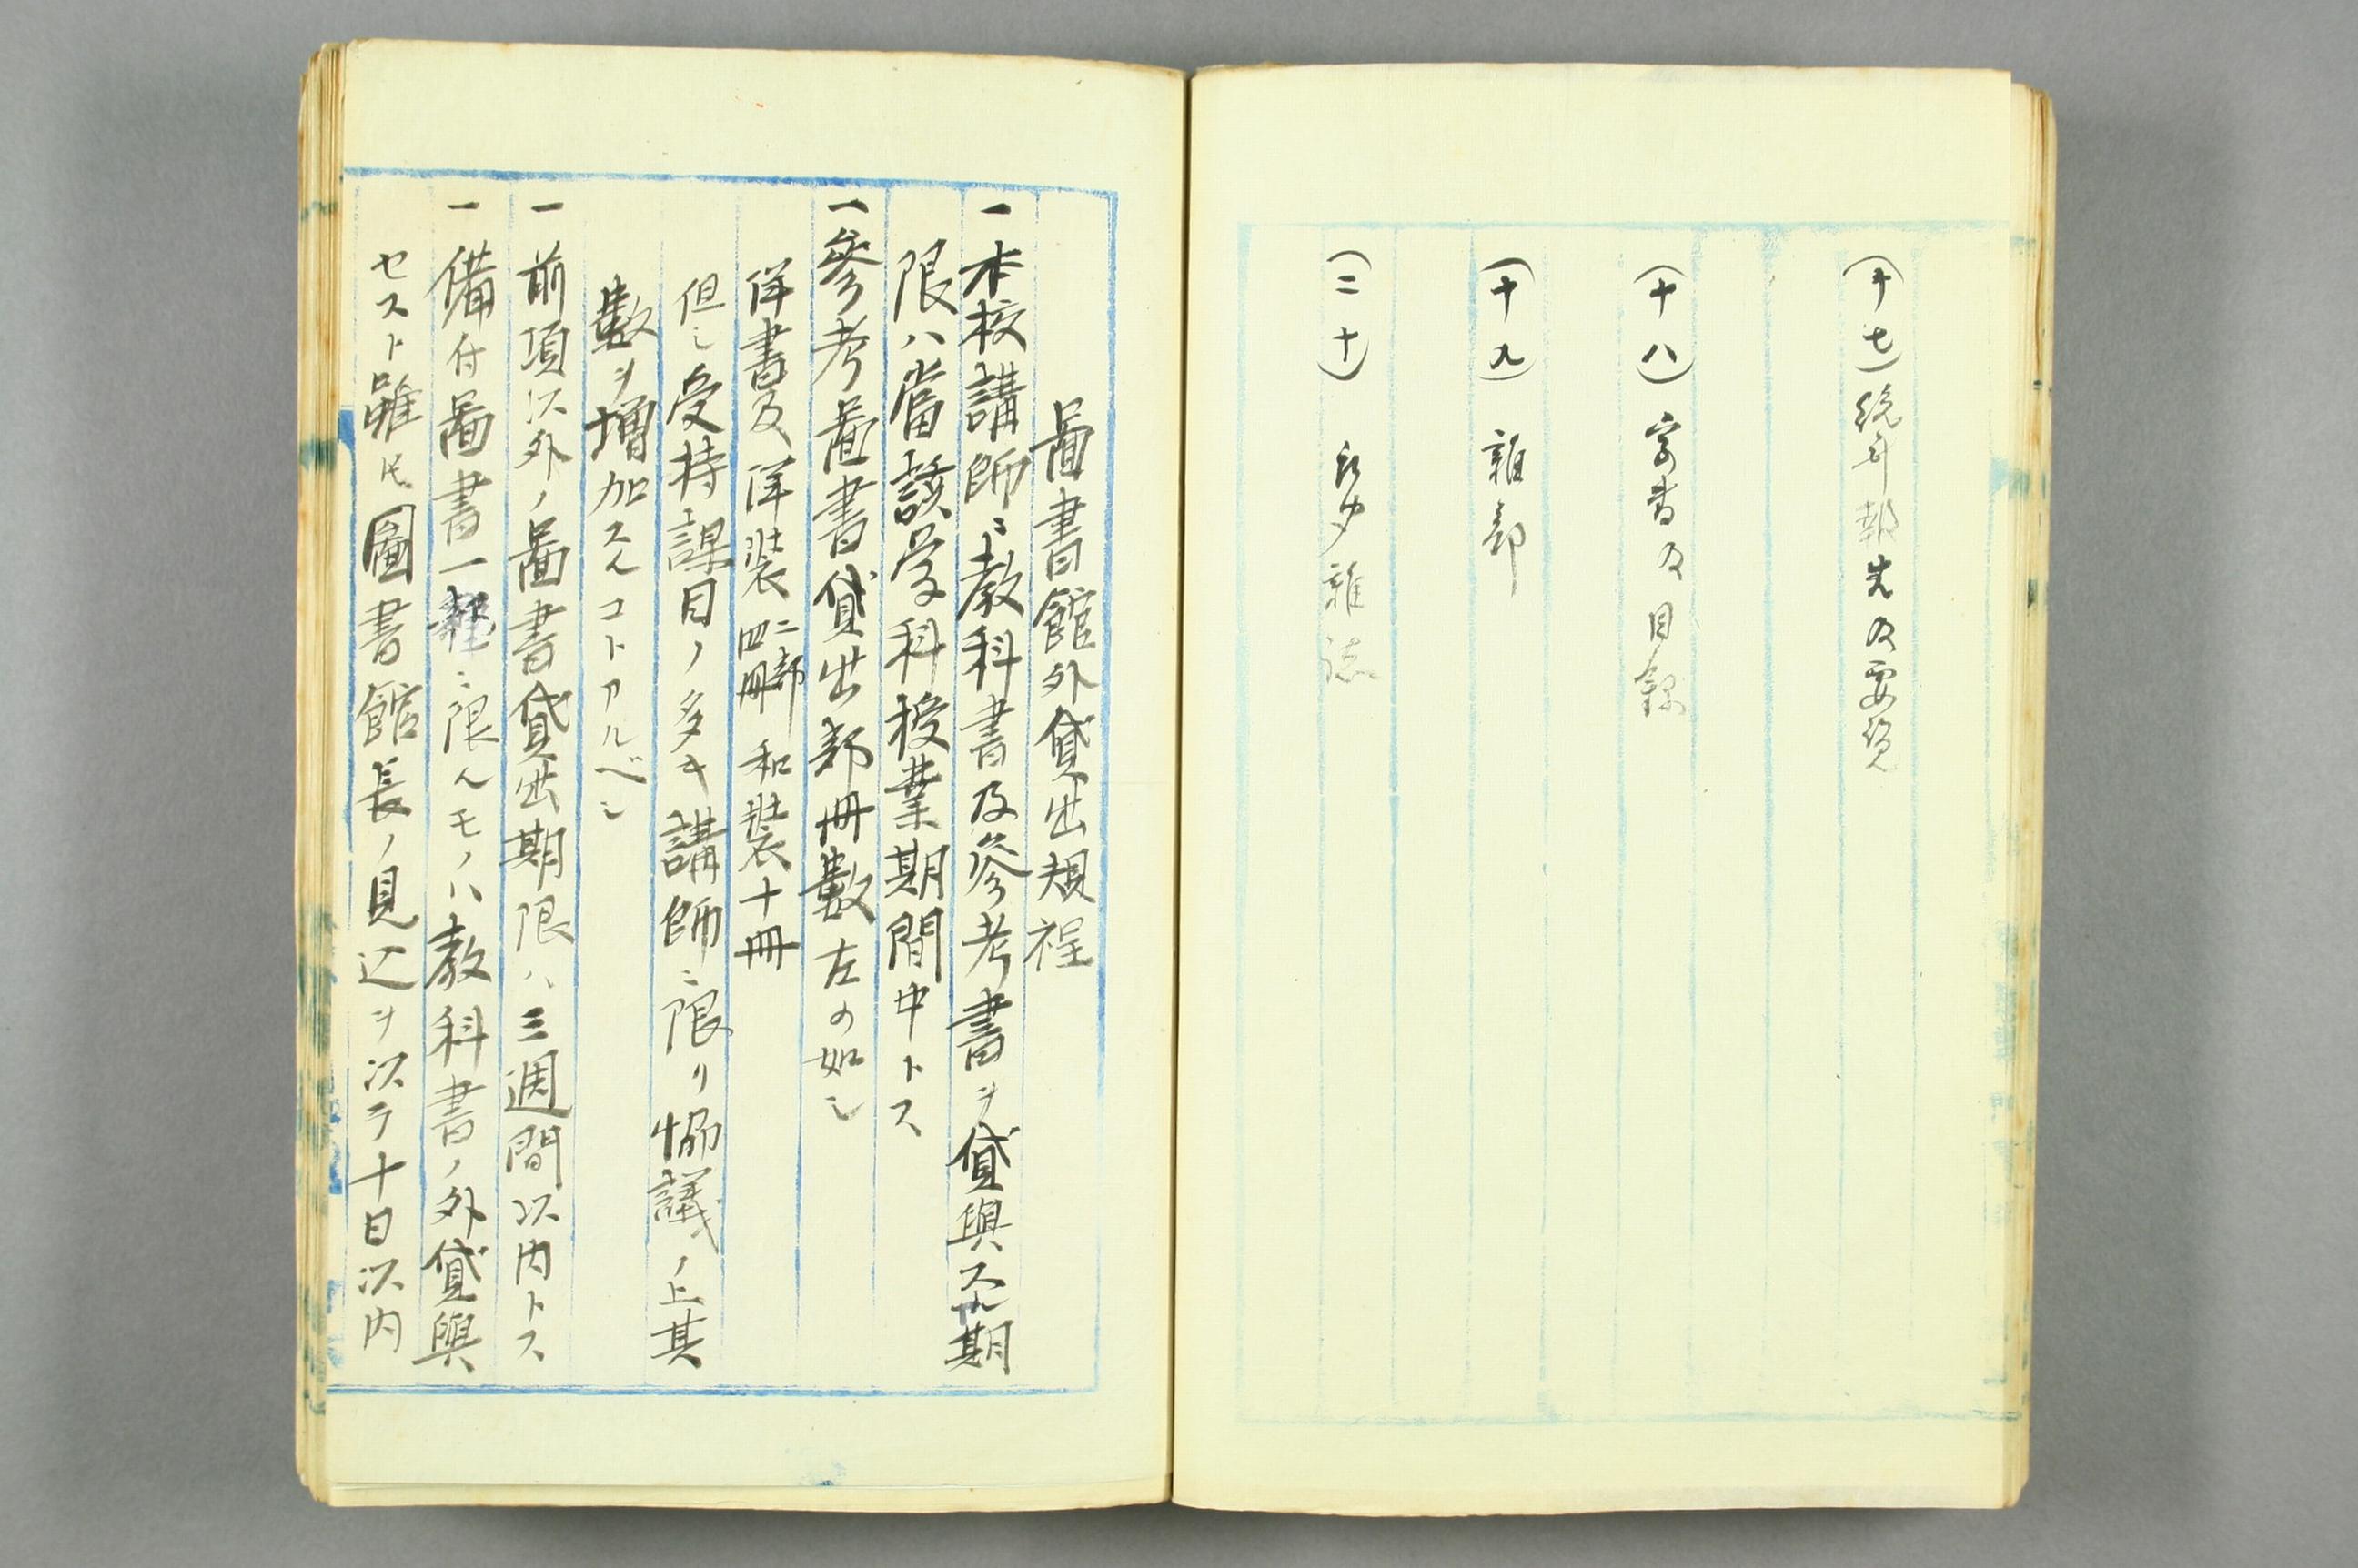 (十七)統計報告及要覧
(十八)字書及目録
(十九)雑部
(二十)雑誌
圖書館外貸出規程
一本校講師ニ教科書及参考書ヲ貸與スル期
限ハ當該受科授業期間中トス
一參考圖書貸出部冊數左の如し
洋書及洋装二部四冊 和装十冊
但シ受持課目ノ多キ講師ニ限リ協議ノ上其
數ヲ増加スルコトアルベシ
一前項以外ノ圖書貸出期限ハ三週間以内トス
一備付圖書一部ニ限ルモノハ教科書ノ外貸與
セスト雖モ圖書館長ノ見込ヲ以テ十日以内